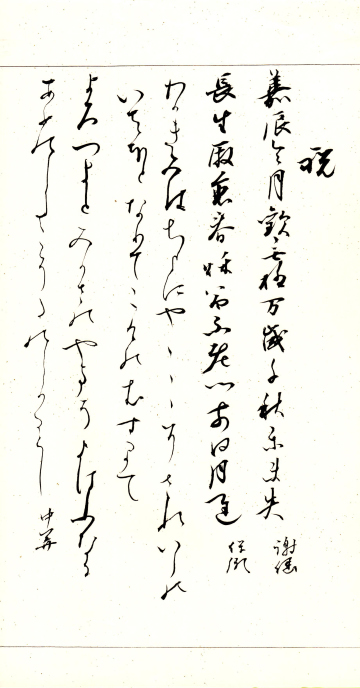 祝
嘉辰令月歓無極万歳千秋楽未央 謝偃
長生殿裏春秋富不老門前日月遅 保胤
わかきみはちよにやちよにさゝれいしの
いはほとなりてこけのむすまて
よろつよとみかさのやまそよはふなる
あめのしたこそたのしかるらし 仲算